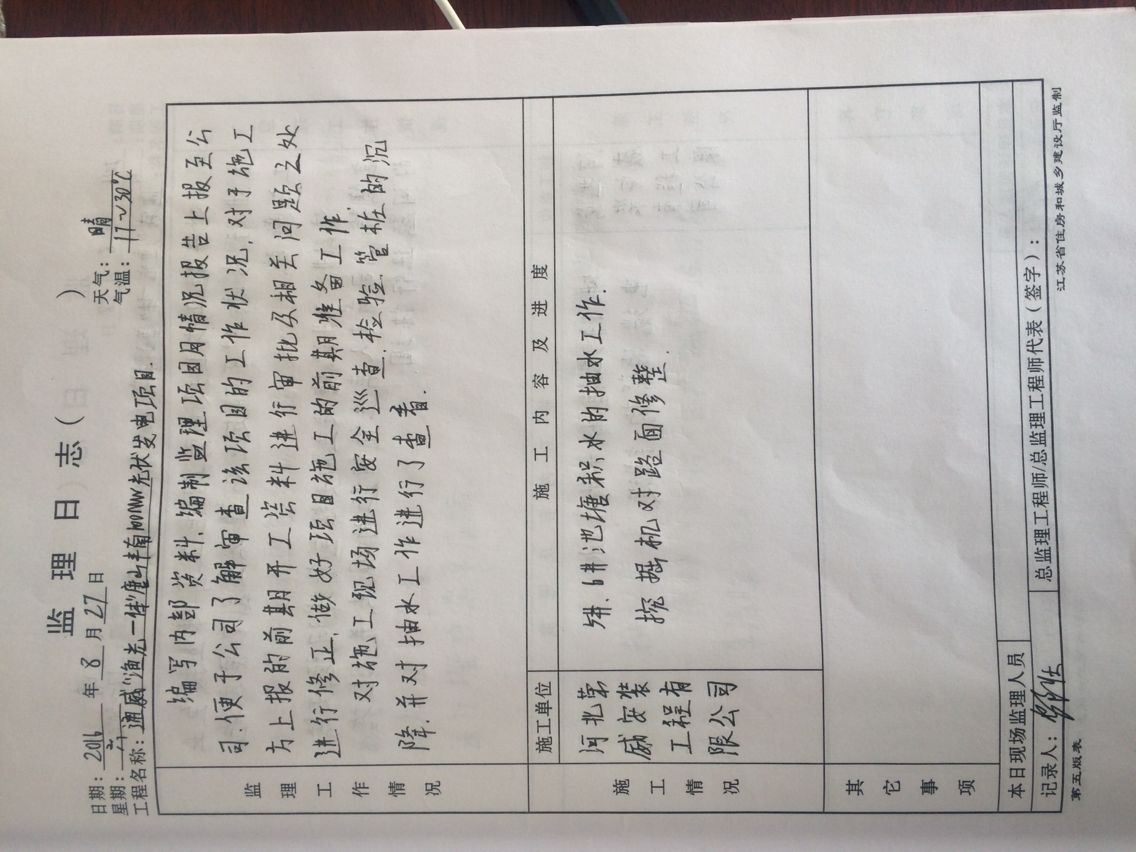 监理日志（日                    ）
日期：2016年8月27日 天气：晴
星期：六 气温：17~30℃
工程名称：通威“渔光一体”唐山丰南100MW光伏发电项目.
监理工作情况
编写内部资料,编制监理项目月情况报告上报至公
司.便于公司了解审查该项目的工作状况.对于施工
方上报的前期开工资料进行审批及相关问题之处
进行修正,做好项目施工的前期准备工作,
对施工现场进行安全巡查,检验管桩的沉
降.并对抽水工作进行了查看.
施工情况
施工单位 施工内容及进度
河北第
威安装
工程有
限公司
5#、6#池塘积水的抽水工作.
挖掘机对路面修整.
其它事项
本日现场监理人员
记录人： 总监理工程师/总监理工程师代表（签字）：
第五版表 江苏省住房和城乡建设厅监制